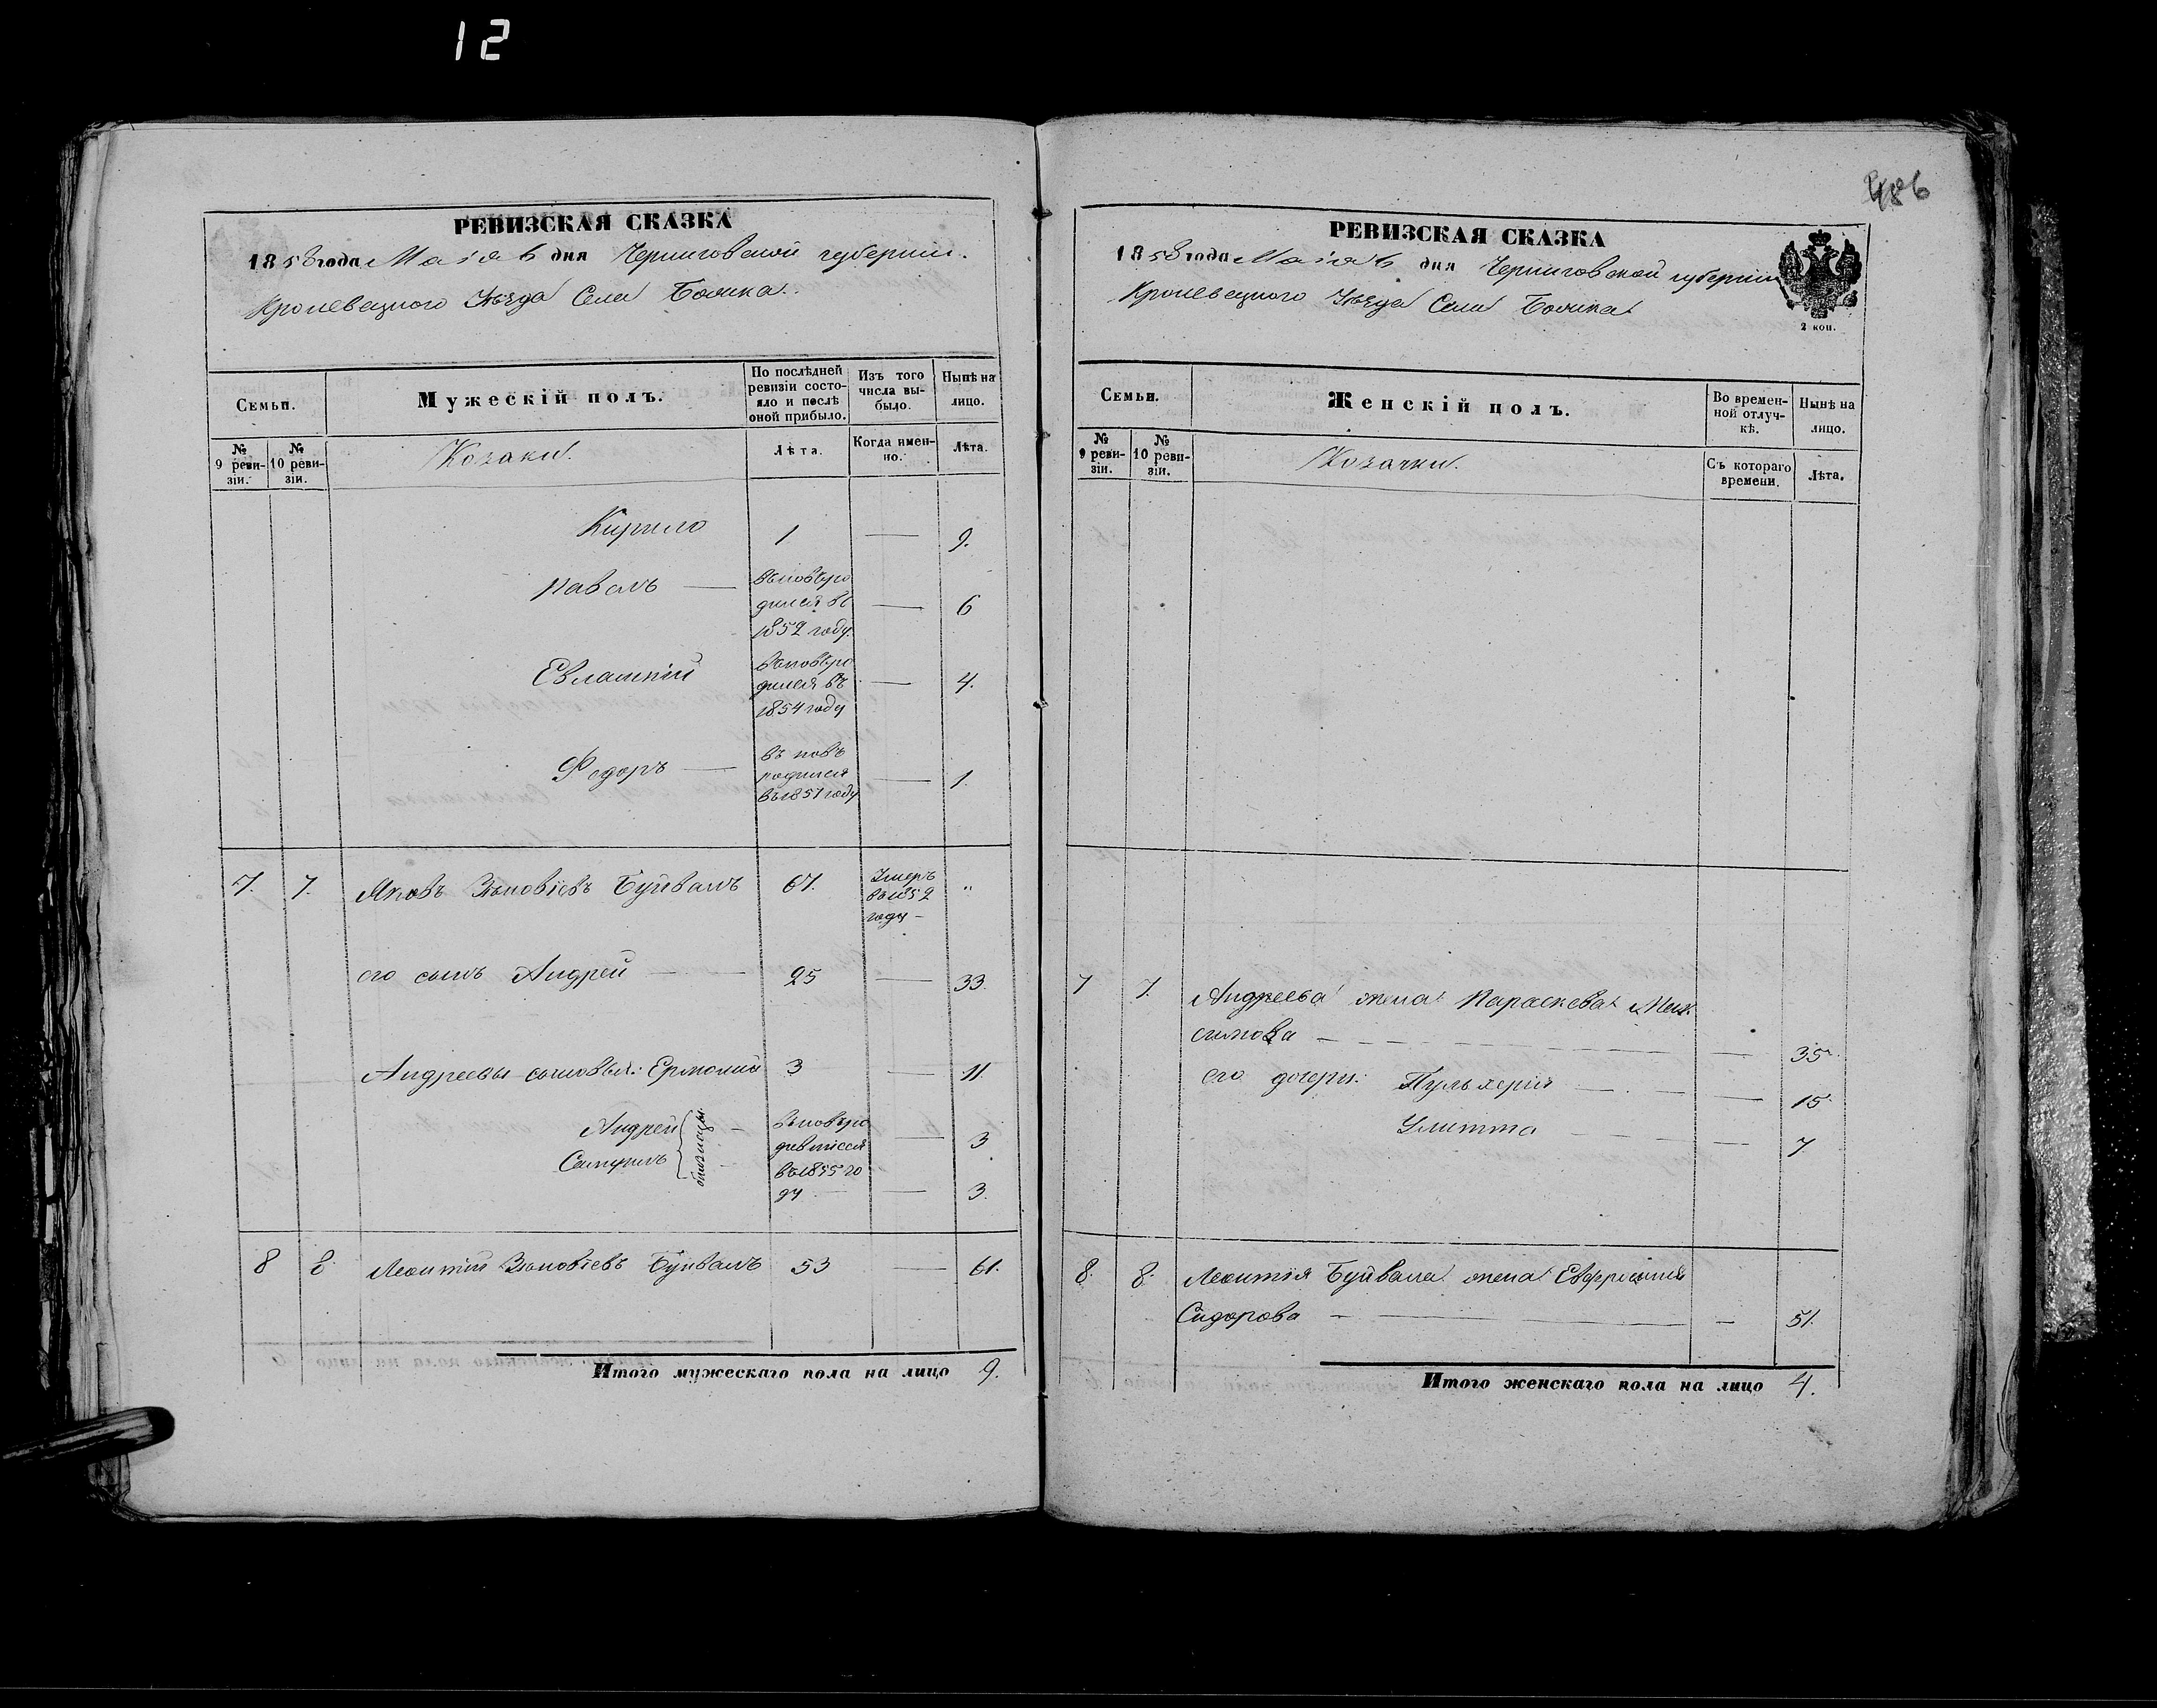 12
РЕВИЗСКАЯ СКАЗКА
1858 года Маія 6 дня Черниговской губерніи.
Кролевецкого Уѣзда Села
Семьи.
Мужескій полъ.
По послѣдней ревизіи состояло и послѣ оной прибыло.
Изъ того числа выбыло.
Нынѣ на лицо.
№ 9 ревизіи.
№ 10 ревизіи.
Козаки.
Лѣта.
Когда именно.
Лѣта.
Кирило 1 — 9.
Павелъ — вьновьро
дился въ — 6
1852 году.
Евлампій вьновьро
дился въ — 4.
1854 году
Федоръ — въ новь
родился — 1.
въ 1857 году
7. 7. Яковъ Зѣновіевъ Буйвалъ 67. Умеръ "
въ 1852
году —
его сынъ Андрей — 25 — 33.
Андреевы сыновья: Ермолай 3 — 11.
Андрей близнацы — вьновьро — 3
дившіеся
въ 1855 го
ду — 3.
8 8 Леонтій Зѣновіевъ Буйвалъ 53 — 61.
Итого мужескаго пола на лицо 9.
РЕВИЗСКАЯ СКАЗКА
1858 года Маія 6 дня Черниговской губерніи
Кролевецкого Уѣзда Села
2 коп.
Семьи.
Женскій полъ.
Во временной отлучкѣ.
Нынѣ на лицо.
№ 9 ревизіи.
№ 10 ревизіи.
Козачки.
Съ котораго времени.
Лѣта.
7 7. Андреева жена Параскева Мак
симова — 35.
его дочери: Пульхерія — 15.
Улитта — 7
8. 8. Леонтія Буйвала жена Евфросинія
Сидорова — 51.
Итого женскаго пола на лицо 4.